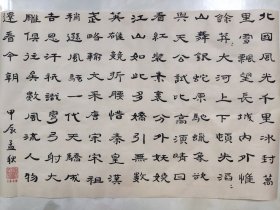 北國風光千里冰封萬
里雪飄望長城內外惟
餘莽大河上下頓失滔
山舞銀蛇原馳蠟象欲
與天公試比高須晴日
看紅裝素裹分外妖嬈
江山如此多嬌引無數
英雄競折腰惜秦皇漢
武略輸文采唐宗宋祖
稍遜風騷一代天驕成
吉思汗祇識彎弓射大
雕俱往矣數風流人物
還看今朝
甲辰孟秋